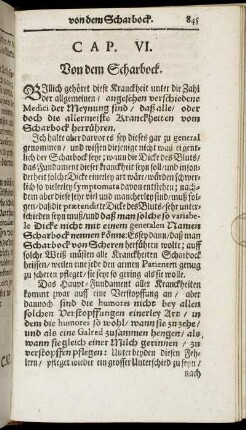 von dem Scharbock. 845
CAP. VI.
Von dem Scharbock.
BIllich gehöret diese Kranckheit unter die Zahl
der allgemeinen / angesehen verschiedene
Medici der Meynung sind / daß alle / oder
doch die allermeiste Kranckheiten vom
Scharbock herrühren.
Ich halte aber darvor es sey dieses gar zu general
genommen / und wissen diejenige nicht was eigent-
lich der Scharbock seye; wann die Dicke des Bluts /
das Fundament dieser Kranckheit seyn soll / und inson-
derheit solche Dicke einerley art wäre / warum
so vielerley symptomata davon entstehen; nach-
dem aber diese sehr viel und mancherley sind / muß fol-
gen / daß die Dicke des Bluts / sehr unter-
schieden seyn muß / und daß man solche so variabe-
le Dicke nicht mit einem generalen Namen
Scharbock nennen könne: Es sey dann / daß man
Scharbock von Scheren herführen wolte; auff
solche Weiß müsten alle Kranckheiten Scharbock
heissen / weilen eine jede den armen Patienten genug
zu scheren pfleget / sie seye so gering als sie wolle.
Das Haupt-Fundament aller Kranckheiten
kommt zwar auff eine Verstopffung an / aber
dannoch sind die humores nicht bey allen
solchen Verstopffungen einerley Art / in
dem die humores so wohl / wann sie zu zehe /
und als eine Galred zusammen hengen / als
wann sie gleich einer Milch gerinnen / zu
verstopffen pflegen: Unter beyden diesen Feh-
lern / pfleget wieder ein grosser Unterschied zu seyn /
nach